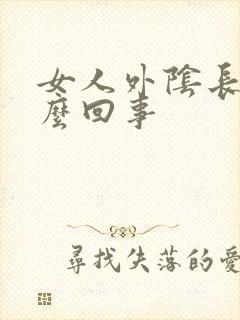 女人外陰長
麼回事
尋找失落的愛